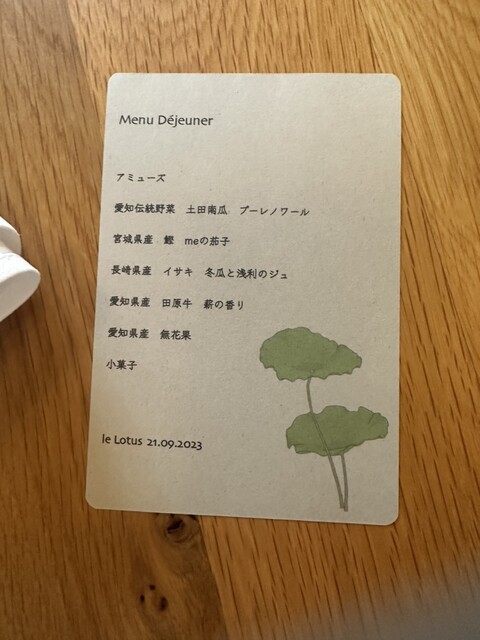 Menu Déjeuner
アミューズ
愛知伝統野菜　土田南瓜　プーレノワール
宮城県産　鰹　meの茄子
長崎県産　イサキ　冬瓜と浅利のジュ
愛知県産　田原牛　薪の香り
愛知県産　無花果
小菓子
le Lotus 21.09.2023